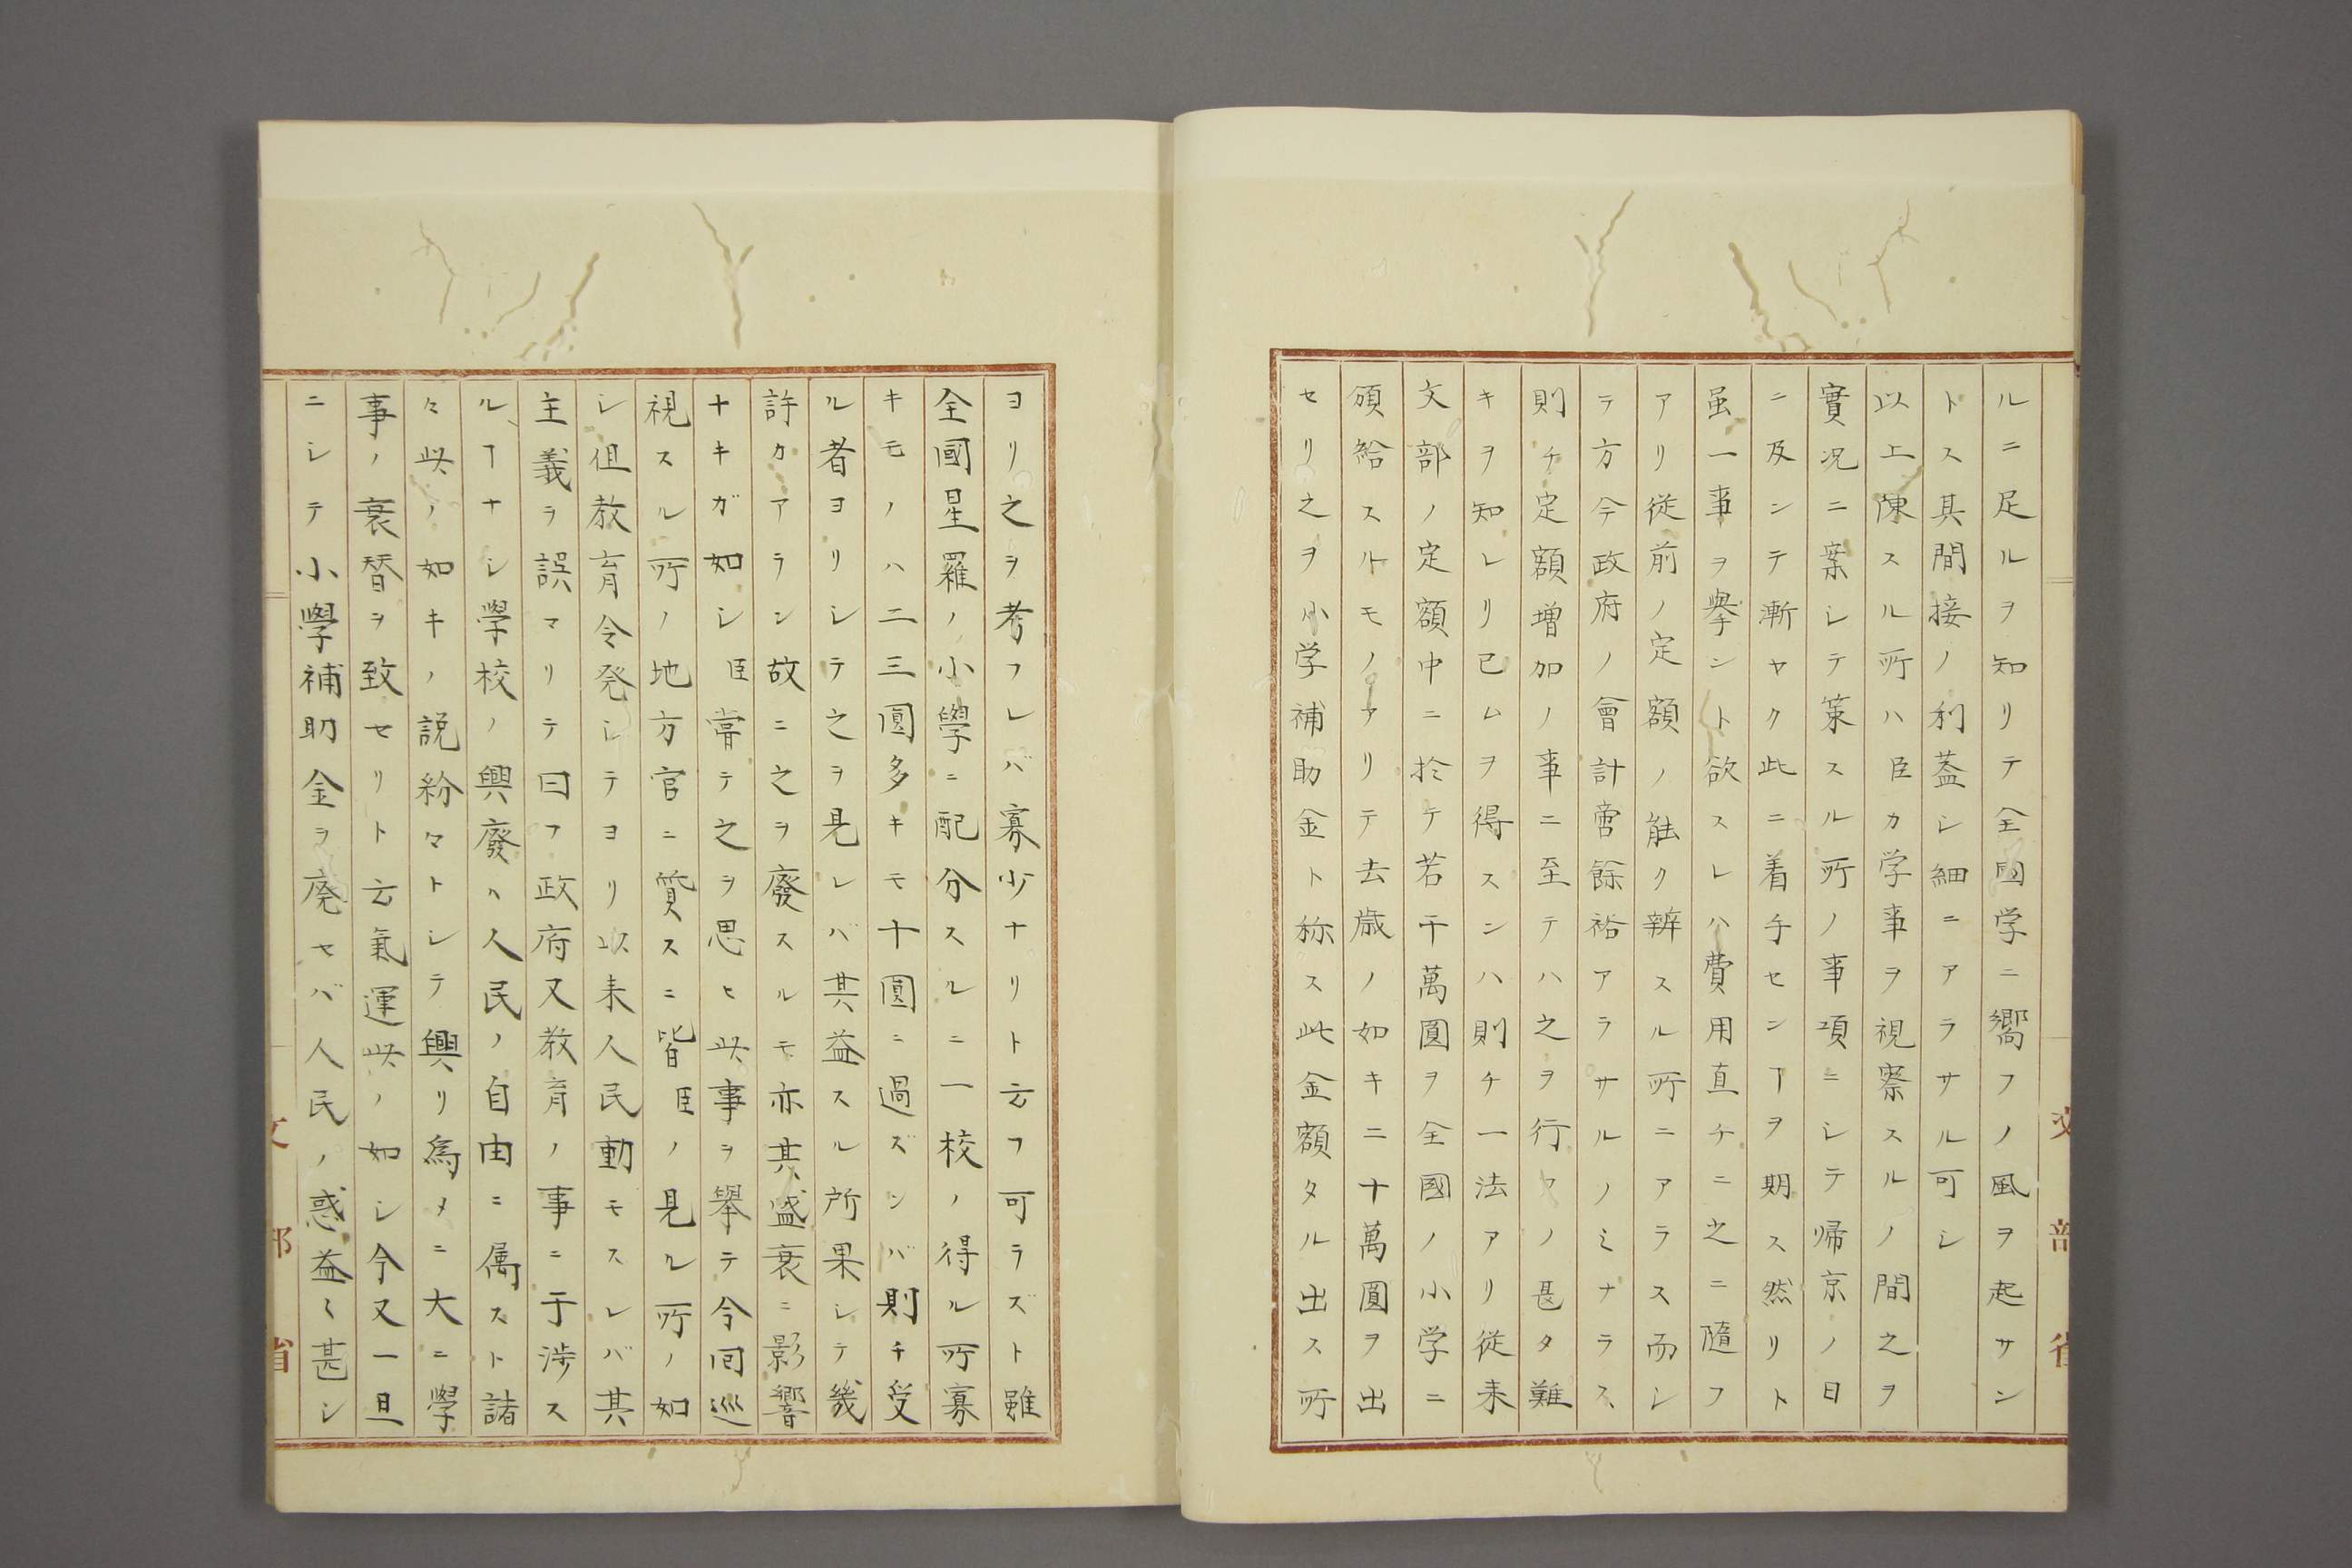 ルニ足ルヲ知リテ全国学ニ嚮フノ風ヲ起サン
トス其間接ノ利蓋シ細ニアラサル可シ
以上陳スル所ハ臣カ学事ヲ視察スルノ間之ヲ
實況ニ案シテ策スル所ノ事項ニシテ帰京ノ日
ニ及ンテ漸ヤク此ニ着手センヿヲ期ス然リト
虽一事ヲ擧ント欲スレハ費用直チニ之ニ隨フ
アリ従前ノ定額ノ能ク辨スル所ニアラス而シ
テ方今政府ノ會計啻餘裕アラサルノミナラス、
則チ定額増加ノ事ニ至テハ之ヲ行フノ甚タ難
キヲ知レリ已ムヲ得スンハ則チ一法アリ従来
文部ノ定額中ニ於ケ若干萬圓ヲ全國ノ小学ニ
頒給スルモノアリテ去歳ノ如キ二十萬圓ヲ出
セリ之ヲ小学補助金ト称ス此金額タル出ス所
ヨリ之ヲ考フレバ寡少ナリト云フ可ラズト雖
全國星羅ノ小學ニ配分スルニ一校ノ得ル所寡
キモノハ二三圓多キモ十圓ニ過ズンバ則チ受
ル者ヨリシテ之ヲ見レバ其益スル所果シテ幾
許カアラン故ニ之ヲ廢スルモ亦其盛衰ニ影響
ナキガ如シ臣嘗テ之ヲ思ヒ此事ヲ擧テ今回巡
視スル所ノ地方官ニ質スニ皆臣ノ見ル所ノ如
シ但教育令発シテヨリ以来人民動モスレバ其
主義ヲ誤マリテ曰フ政府又教育ノ事ニ干渉ス
ルヿナシ學校ノ興廢ハ人民ノ自由ニ属スト諸
々此ノ如キノ説紛々トシテ興リ為メニ大ニ學
事ノ衰替ヲ致セリト云氣運此ノ如シ今又一旦
ニシテ小學補助金ヲ廃セバ人民ノ惑益〻甚シ
文部省
文部省